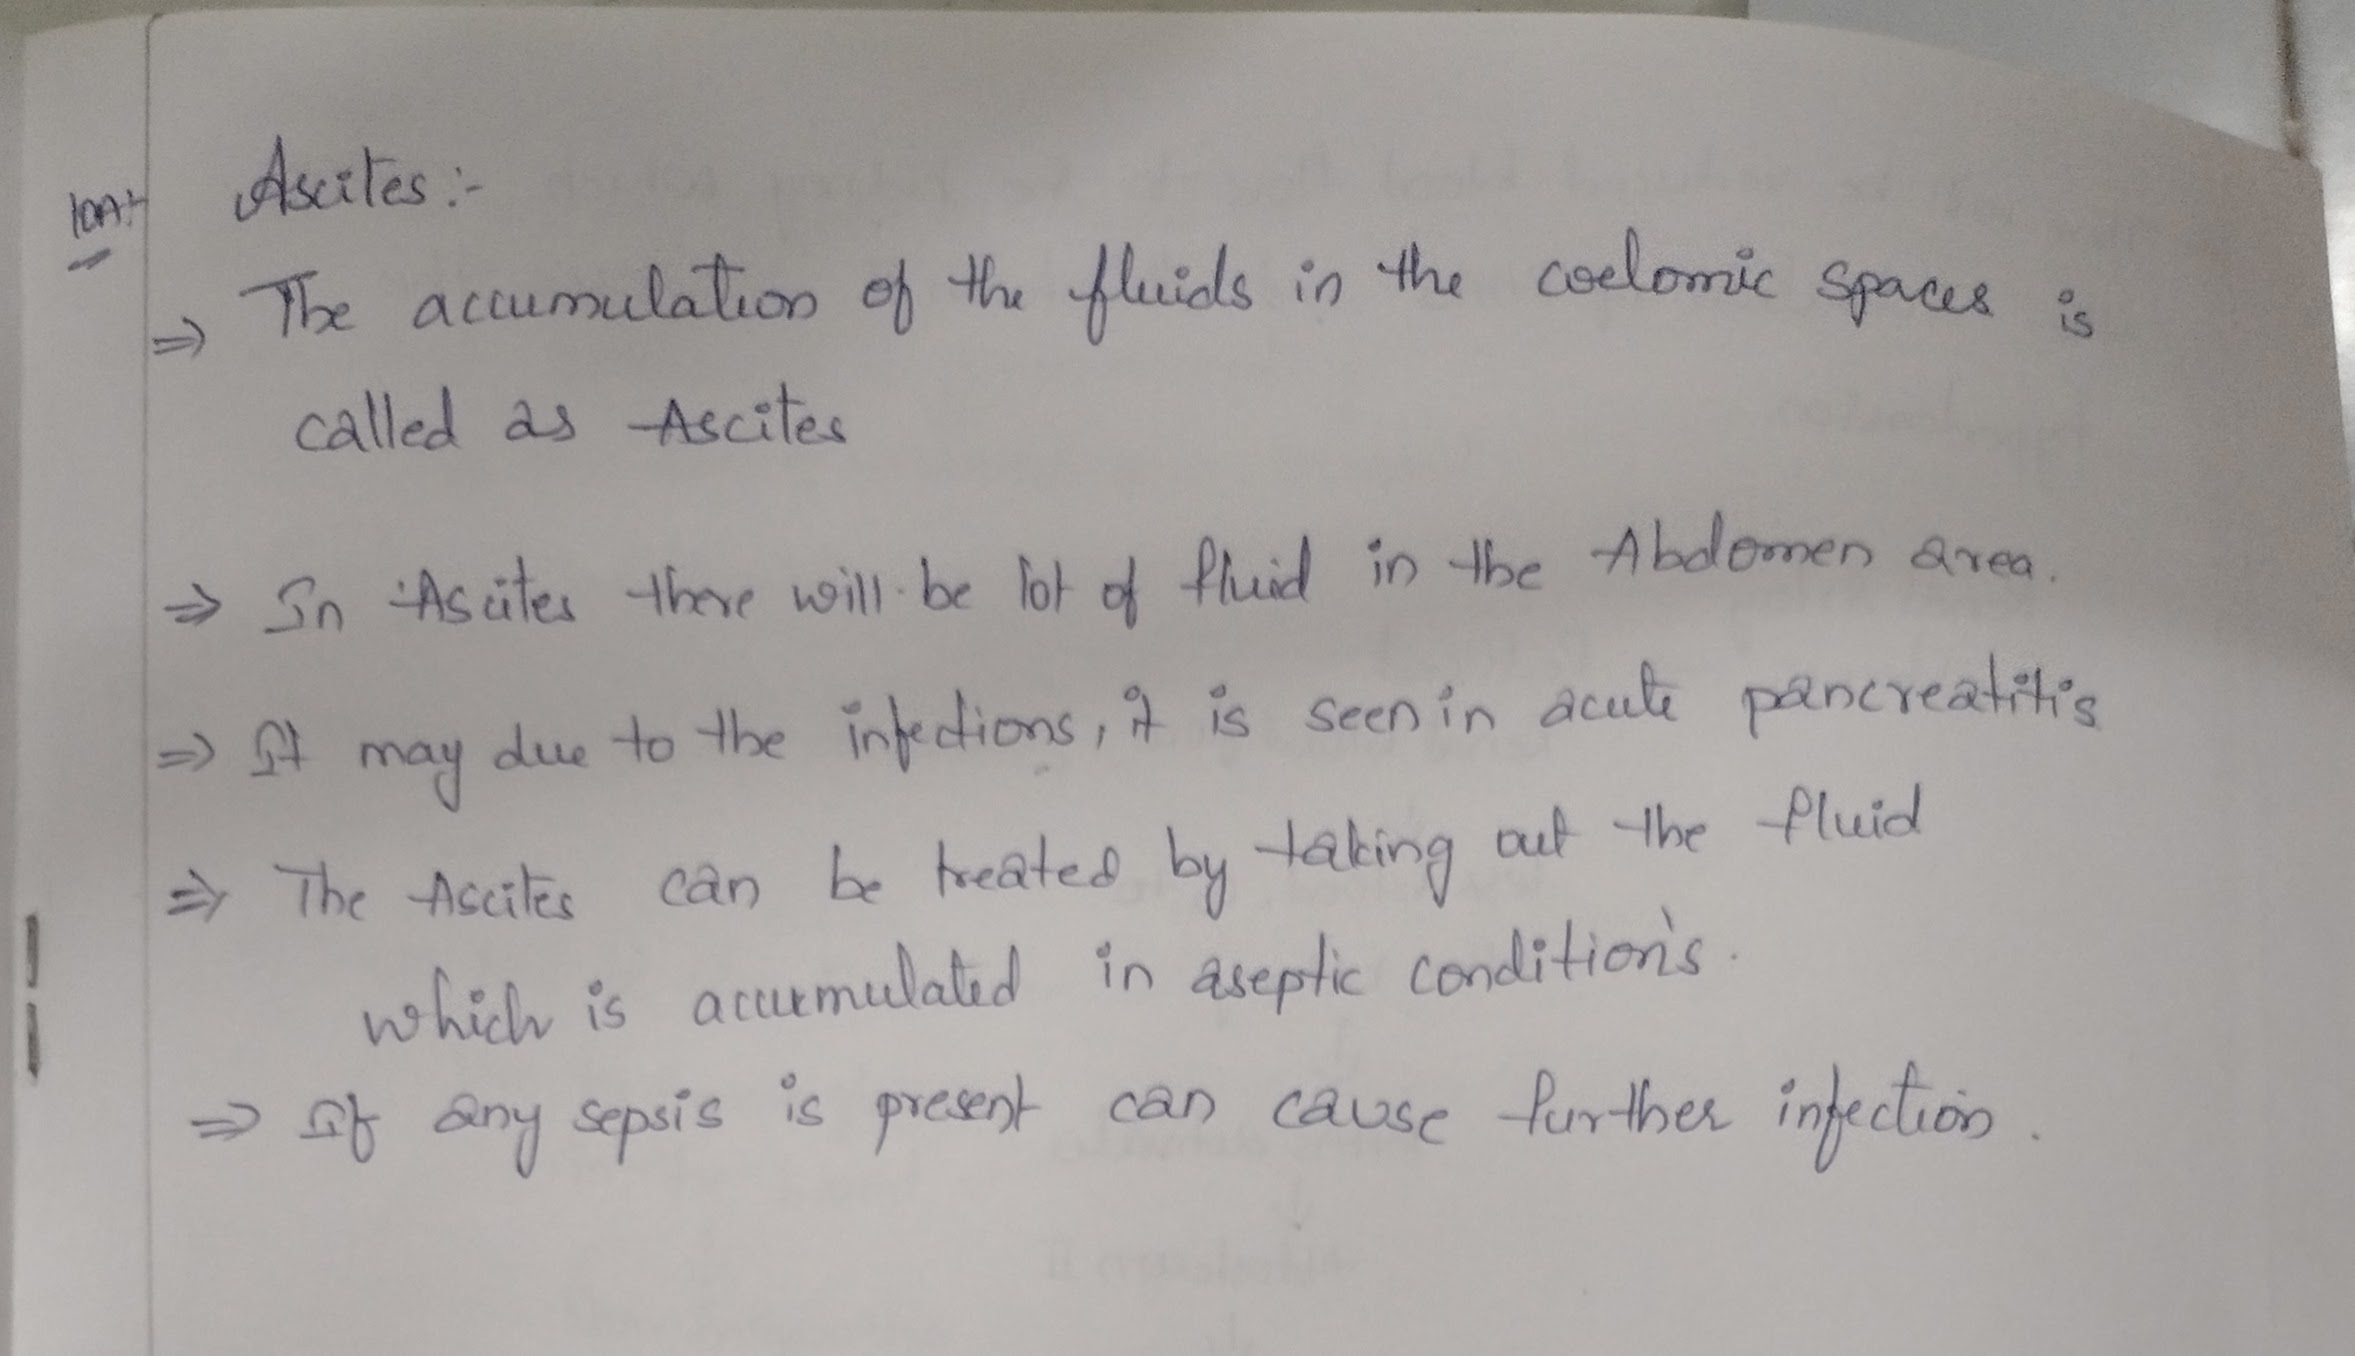 10A:-
Ascites :-
⇒ The accumulation of the fluids in the coelomic spaces is
called as Ascites
⇒ In Ascites there will be lot of fluid in the Abdomen area.
⇒ It may due to the infections, it is seen in acute pancreatitis
⇒ The Ascites can be treated by taking out the fluid
which is accumulated in aseptic condition's.
⇒ If any sepsis is present can cause further infection.